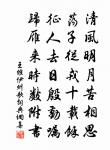 清風明月苦相思
蕩子從戎十載餘
征人去日殷勤囑
歸雁來時數附書
王維伊州歌